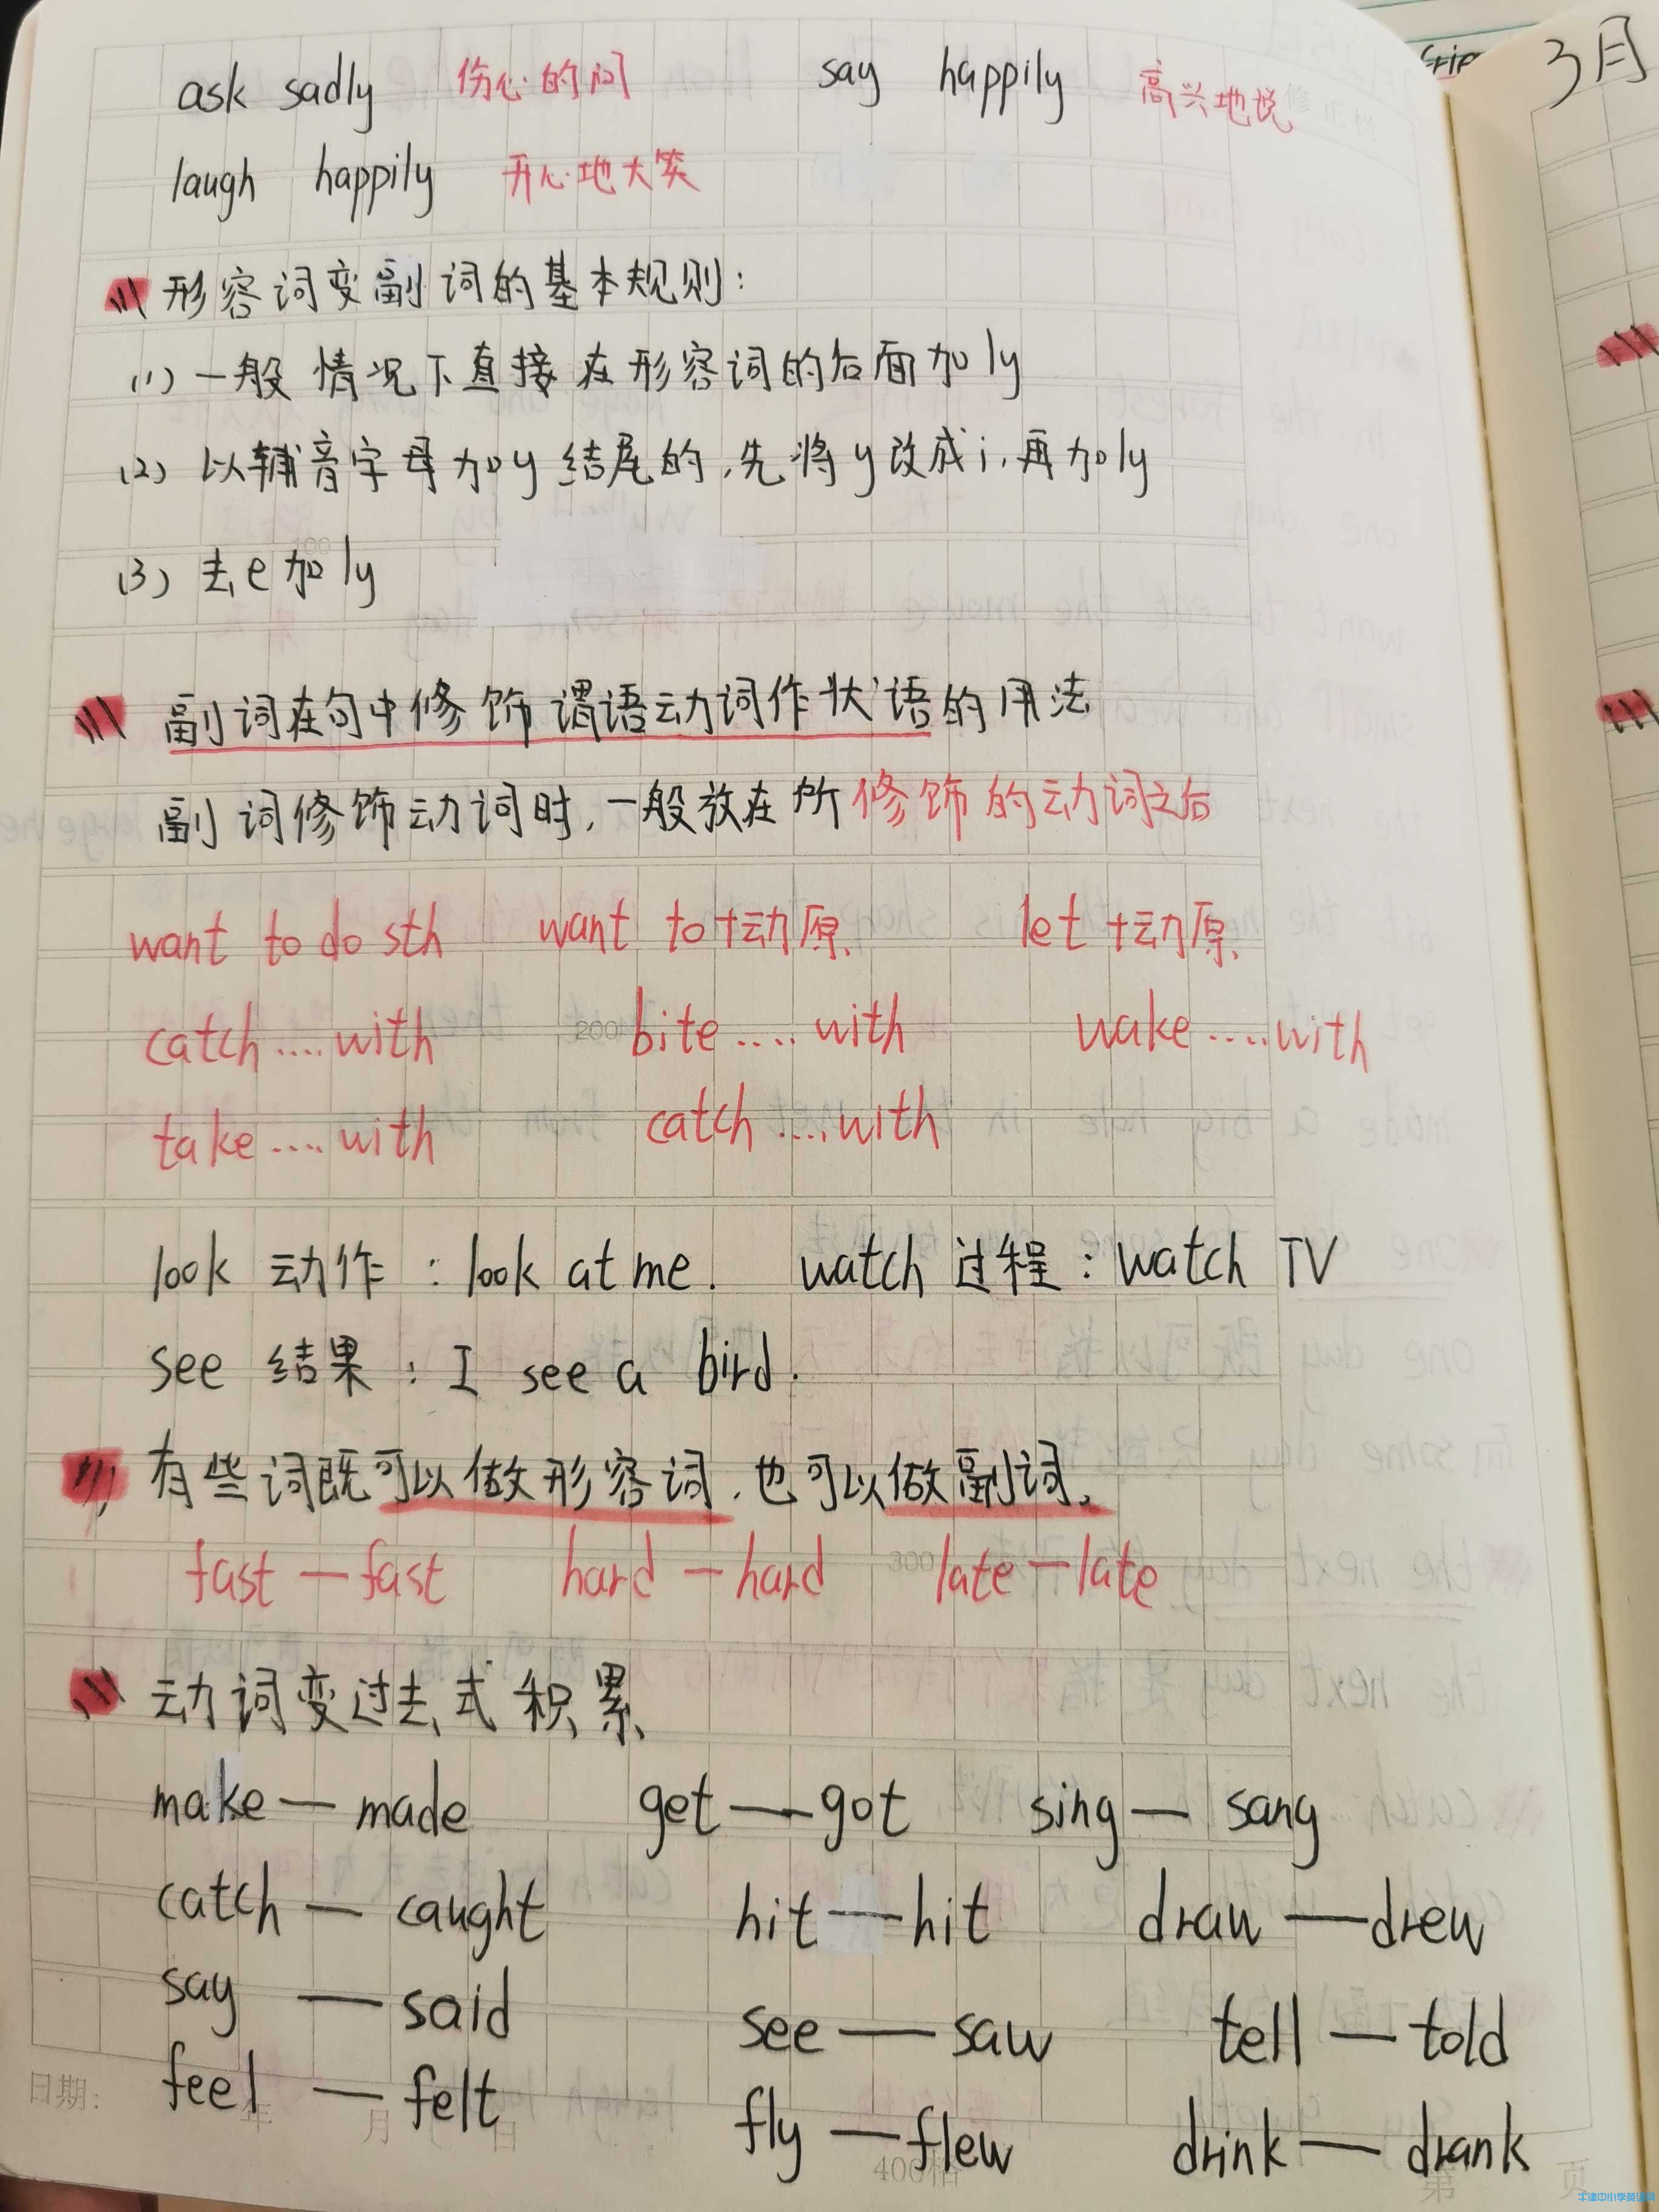 ask sadly 伤心的问 say happily 高兴地说
laugh happily 开心地大笑
形容词变副词的基本规则:
(1) 一般情况下直接在形容词的后面加ly
(2) 以辅音字母加y结尾的,先将y改成i,再加ly
(3) 去e加ly
副词在句中修饰谓语动词作状语的用法
副词修饰动词时,一般放在所修饰的动词之后
want to do sth want to+动原 let+动原
catch....with bite....with wake....with
take....with catch....with
look 动作:look at me. watch 过程:watch TV
see 结果:I see a bird.
有些词既可以做形容词,也可以做副词。
fast—fast hard—hard late—late
动词变过去式积累
make—made get—got sing—sang
catch—caught hit—hit draw—drew
say—said see—saw tell—told
feel—felt fly—flew drink—drank
日期: 年 月 日 400格 第 页
100
200
300
3月
牛津中小学英语网